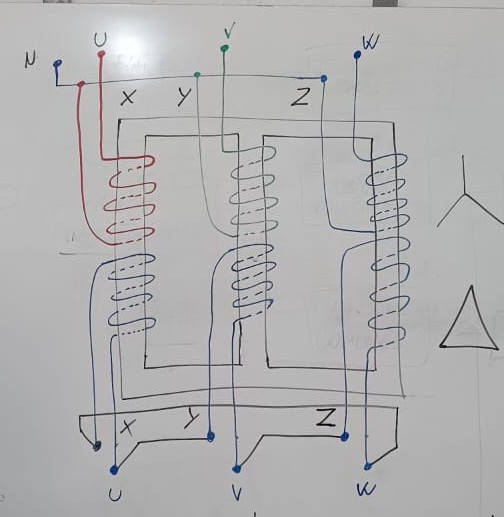 N U V W
X Y Z
X Y Z
U V W